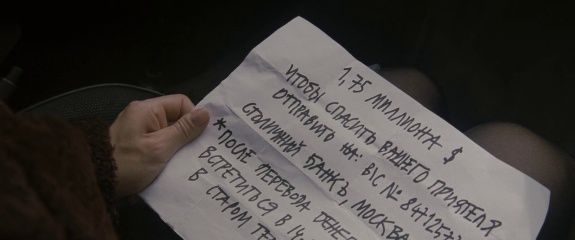 1,75 МИЛЛИОНА $
ЧТОБЫ СПАСИТЬ ВАШЕГО ПРИЯТЕЛЯ
ОТПРАВИТЬ НА: B\C № 8471257
СТОЛИЧНИЙ БАНКЪ, МОСКВА
*ПОСЛЕ ПЕРЕВОДА ДЕНЕГ
ВСТРЕТИТСЯ В 14
В СТАРОМ